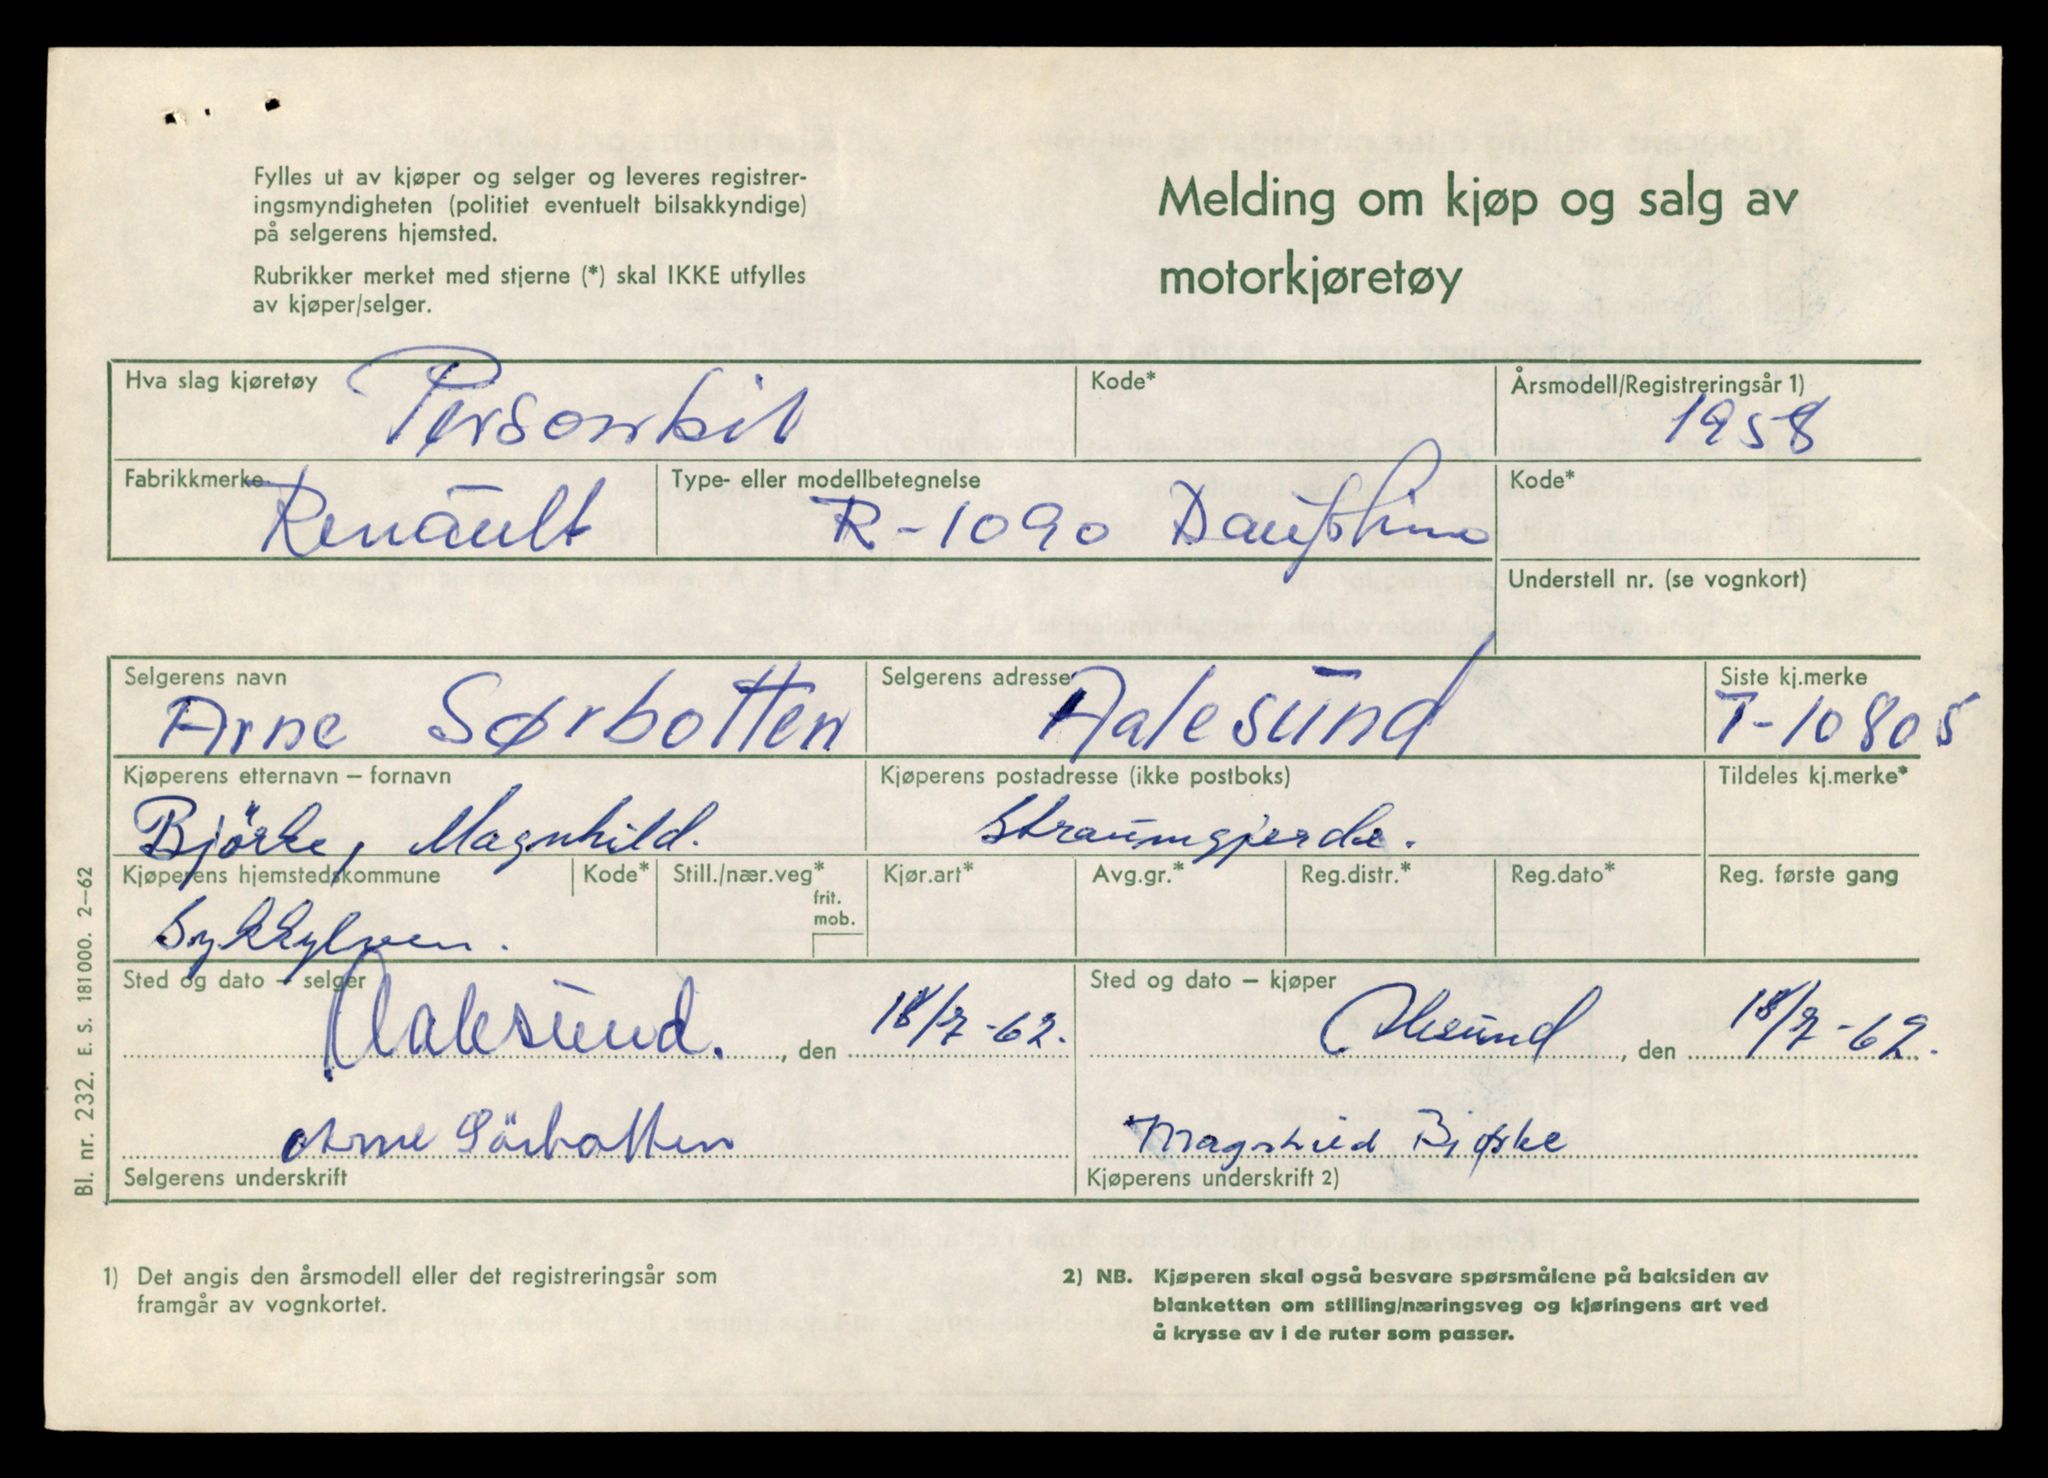 Fylles ut av kjøper og selger og leveres registrer-
ingsmyndigheten (politiet eventuelt bilsakkyndige)
på selgerens hjemsted.
Rubrikker merket med stjerne (*) skal IKKE utfylles
av kjøper/selger.
Melding om kjøp og salg av
motorkjøretøy
Hva slag kjøretøy Personbil
Kode*
Årsmodell/Registreringsår 1) 1958
Fabrikkmerke Renault
Type- eller modellbetegnelse R-1090 Dauphine
Kode*
Understell nr. (se vognkort)
Selgerens navn Arne Sørbotten
Selgerens adresse Aalesund
Siste kj.merke T-10805
Kjøperens etternavn – fornavn Bjørke, Magnhild.
Kjøperens postadresse (ikke postboks) Straumgjerde.
Tildeles kj.merke*
Kjøperens hjemstedskommune Sykkylven.
Kode*
Still./nær.veg*
frit.
mob.
Kjør.art*
Avg.gr.*
Reg.distr.*
Reg.dato*
Reg. første gang
Sted og dato – selger Aalesund. , den 18/7-62.
Sted og dato – kjøper Ålesund , den 18/7-62.
Arne Sörbotten
Selgerens underskrift
Magnhild Bjørke
Kjøperens underskrift 2)
Bl. nr. 232. E. S. 181000. 2–62
1) Det angis den årsmodell eller det registreringsår som
framgår av vognkortet.
2) NB. Kjøperen skal også besvare spørsmålene på baksiden av
blanketten om stilling/næringsveg og kjøringens art ved
å krysse av i de ruter som passer.